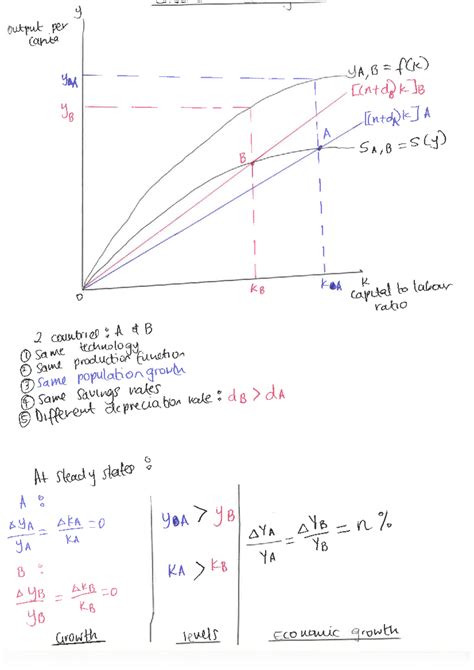 y
output per
capita
yA
yA,B = f(k)
[(n+dB)k]B
yB
[(n+dA)k]A
A
SA,B = S(y)
B
0
kB
kA
k
capital to labour
ratio
2 countries : A & B
① Same technology
② Same production function
③ Same population growth
④ Same savings rates
⑤ Different depreciation rate : dB > dA
At steady states :
A :
ΔyA/yA = ΔkA/kA = 0
B :
ΔyB/yB = ΔkB/kB = 0
Growth
yA > yB
kA > kB
levels
ΔYA/YA = ΔYB/YB = n %
Economic growth